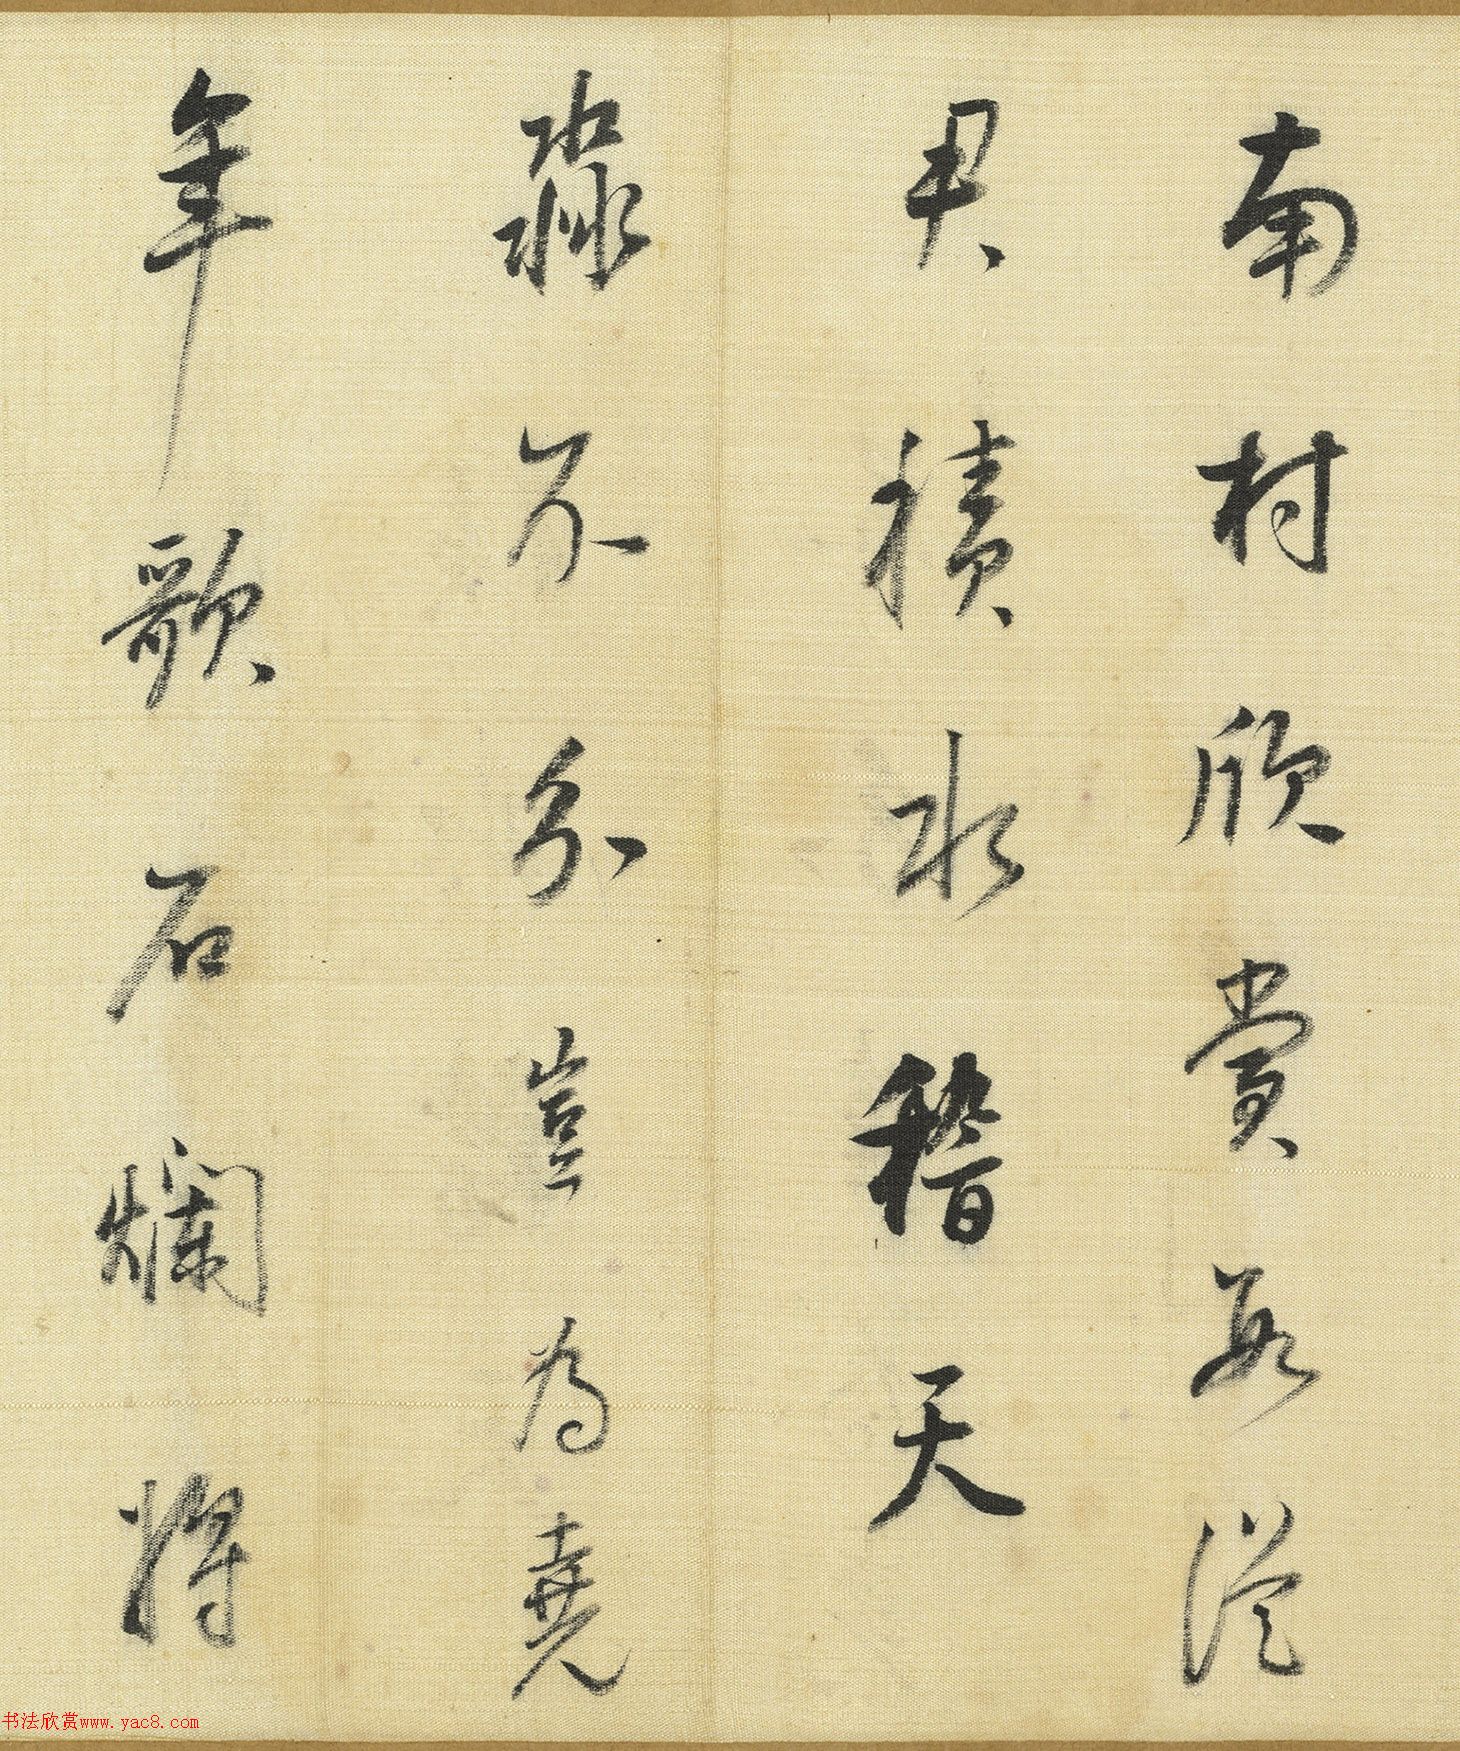 南村欣賞每從
君積水稽天
淼不分豈為堯
年歌石爛將
书法欣赏www.yac8.com